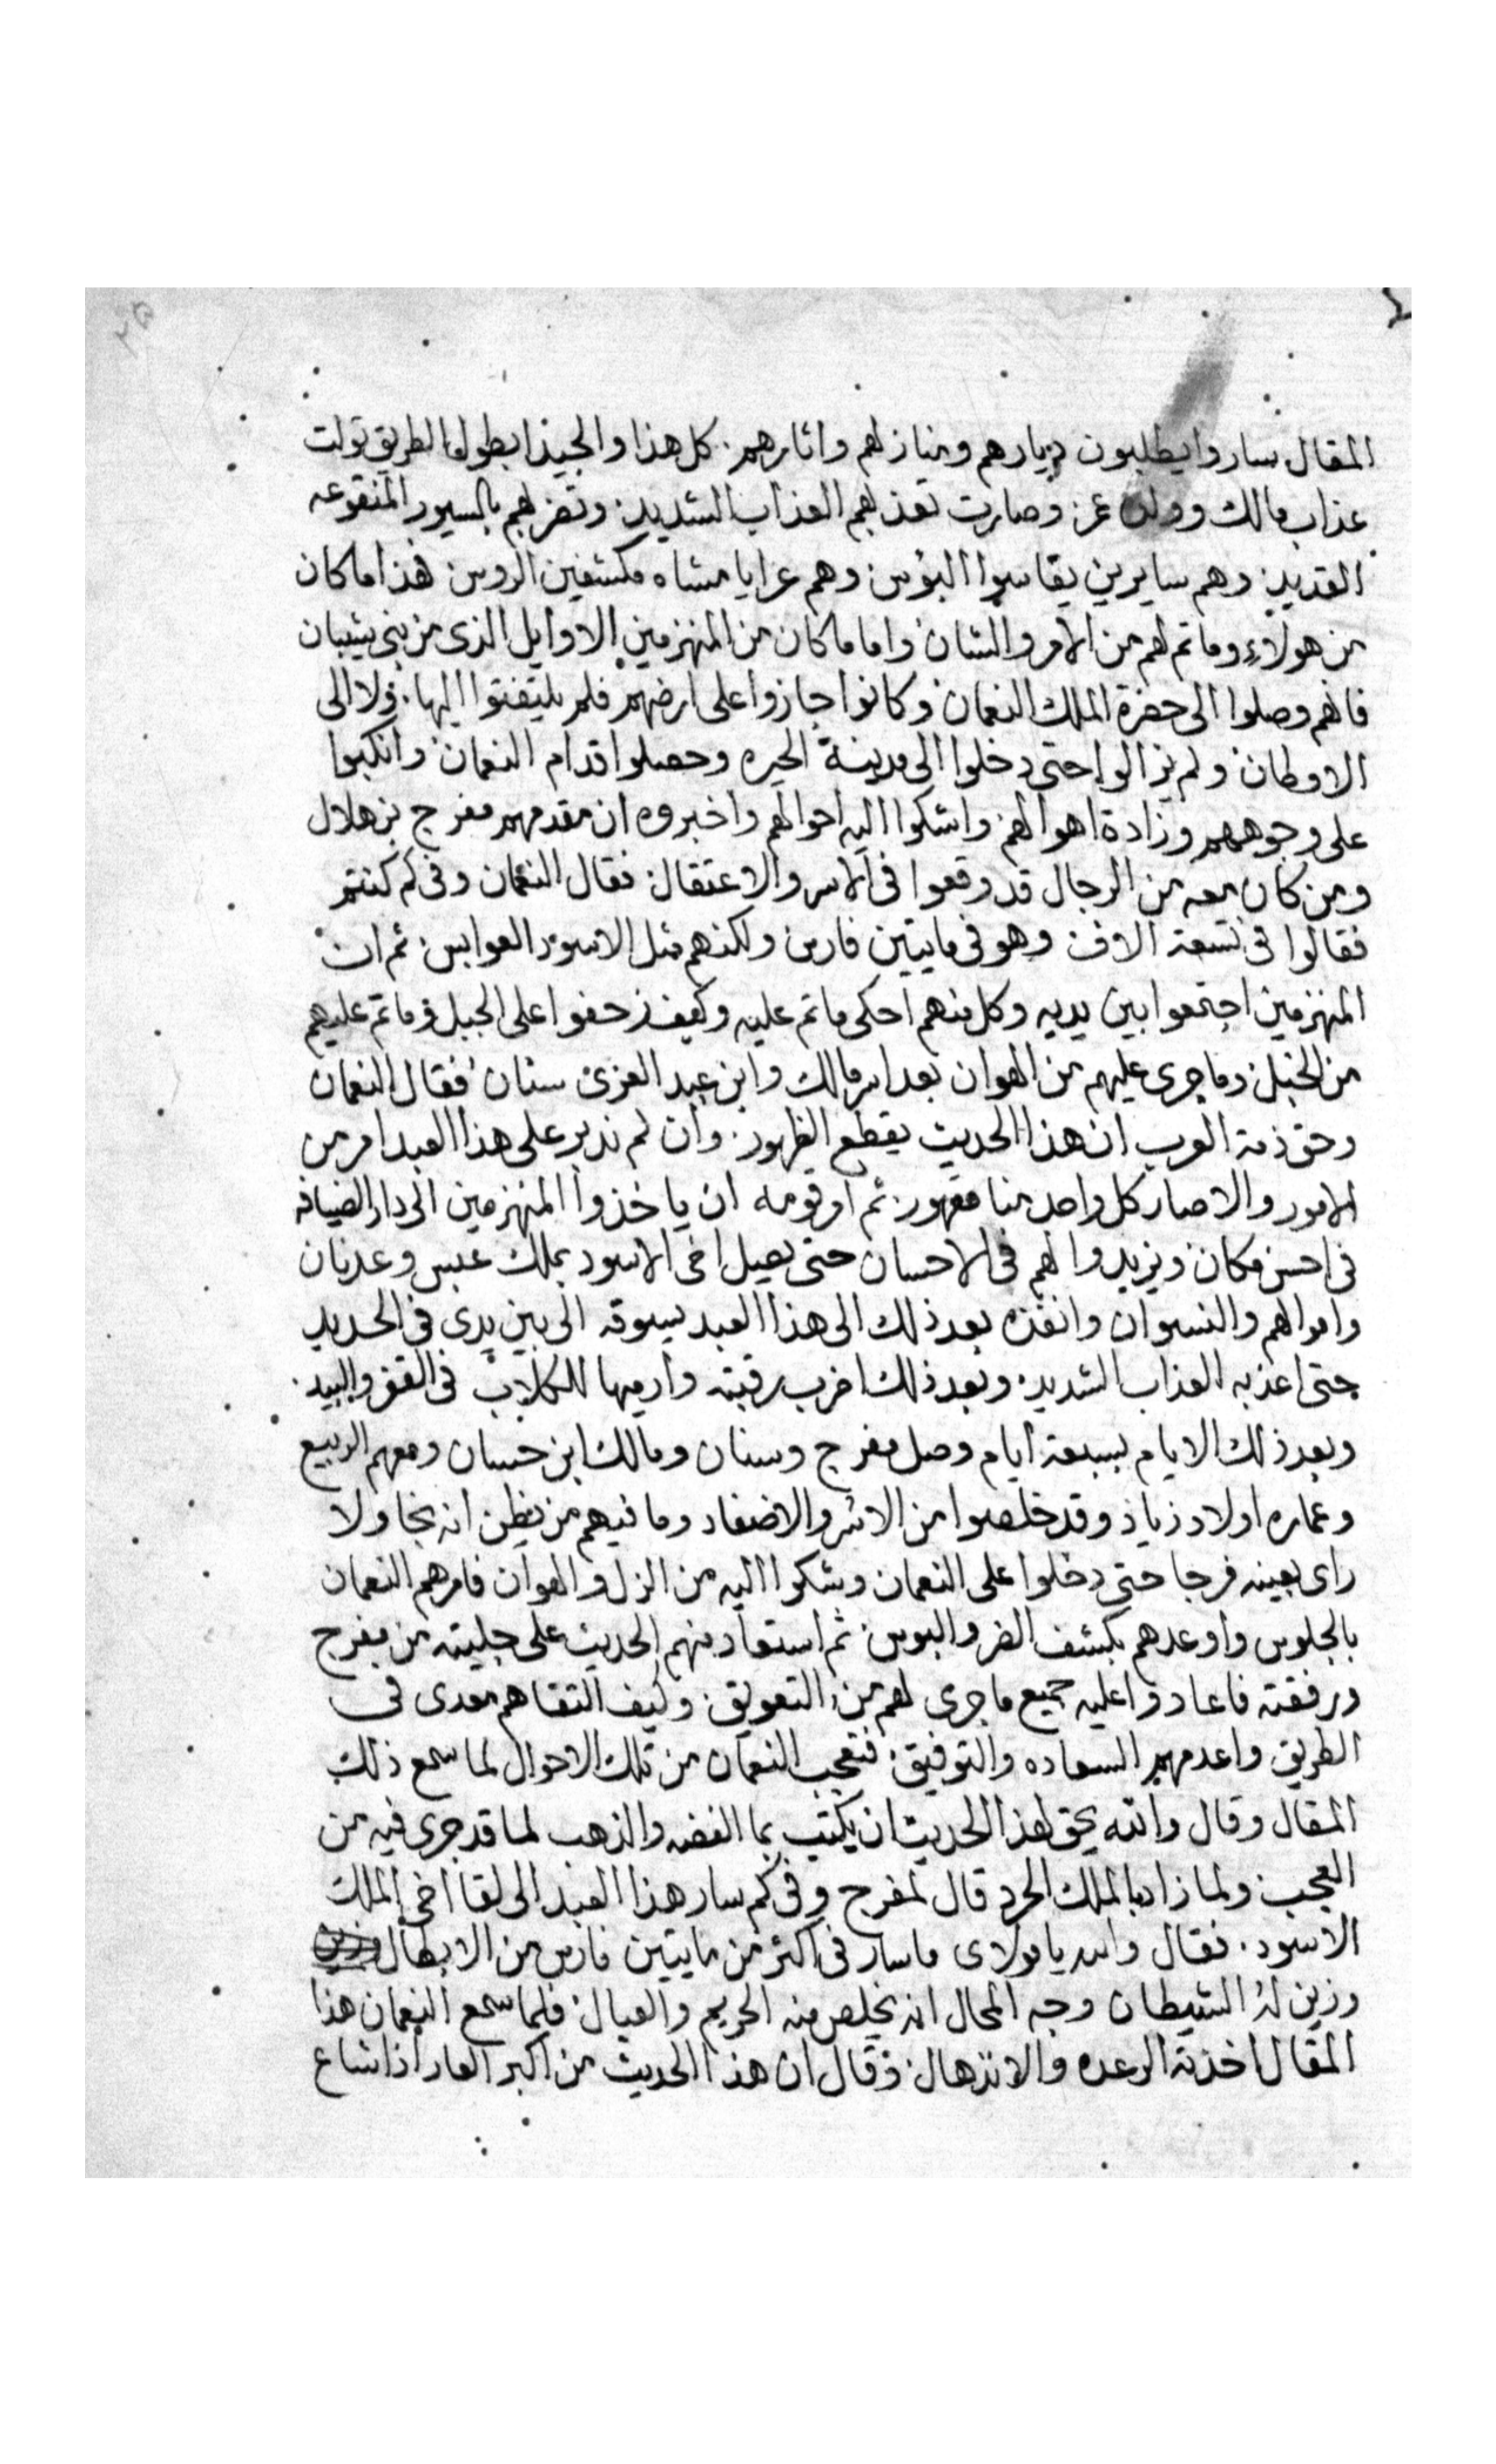 ٢٥
المقال ساروا يطلبون ديارهم ومنازلهم واثارهم. كل هذا والجيذا بطول الطريق تولت
عذاب مالك وولده عمر وصارت تعذبهم العذاب الشديد. وتضربهم بالسيور المنقوعه
القديد وهم سايرين يقاسوا البؤس وهم عرايا مشاه مكشفين الروس هذا ما كان
من هولاء وما تم لهم من الامر والشان واما ما كان من المنهزمين الاوايل الذى من بنى شيبان
فانهم وصلوا الى حضرة الملك النعمان وكانوا جازوا على ارضهم فلم يلتفتوا اليها. ولا الى
الاوطان ولم يزالوا حتى دخلوا الى مدينة الحيره وحصلوا قدام النعمان وانكبوا
على وجوههم وزادة اهوالهم واشكوا اليه احوالهم واخبروه ان مقدمهم مفرج بن هلال
ومن كان معه من الرجال قد وقعوا فى الاسر والاعتقال فقال النعمان وفى كم كنتم
فقالوا فى تسعة الاف وهو فى مايتين فارس ولكنهم مثل الاسود العوابس ثم ان
المنهزمين اجتمعوا بين يديه وكل منهم احكى ما تم عليه وكيف زحفوا على الجبل وما تم عليهم
من الخبل وما جرى عليهم من الهوان بعد اسر مالك وابن عبد العزى سنان فقال النعمان
وحق ذمة العرب ان هذا الحديث يقطع الظهور. وان لم ندبر على هذا العبد امر من
الامور والا صار كل واحد منا مقهور. ثم امر قومه ان ياخذوا المنهزمين الى دار الضيافه
فى احسن مكان ويزيدوا لهم فى الاحسان حتى يصيل اخى الاسود بملك عبس وعدنان
واموالهم والنسوان وانفذه بعد ذلك الى هذا العبد يسوقه الى بين يدى فى الحديد
حتى اعذبه العذاب الشديد. وبعد ذلك اضرب رقبته وارميها للكلاب فى القفر والبيد.
وبعد ذلك الايام بسبعة ايام وصل مفرج وسنان ومالك ابن حسان ومعهم الربيع
وعماره اولاد زياد وقد خلصوا من الاسر والاضفاد وما فيهم من يظن انه نجا ولا
راى بعينه فرجا حتى دخلوا على النعمان وشكوا اليه من الزل والهوان فامرهم النعمان
بالجلوس واوعدهم بكشف الضر والبوس. ثم استعاد منهم الحديث على جليته من مفرج
ورفقته فاعادوا عليه جميع ما جرى لهم من التعويق. وكيف التقاهم معدى فى
الطريق واعدمهم السعاده والتوفيق. فتعجب النعمان من تلك الاحوال لما سمع ذلك
المقال وقال والله يحق لهذا الحديث ان يكتب بما الفضه والذهب لما قد جرى فيه من
العجب. ولما زاد بالملك الحرد قال لمفرج وفى كم سار هذا العبد الى لقا اخى الملك
الاسود. فقال والله يا مولاى ما سار فى اكثر من مايتين فارس من الابطال
وزين له الشيطان وجه المحال انه يخلص منه الحريم والعيال. فلما سمع النعمان هذا
المقال اخذته الرعده والانذهال. وقال ان هذا الحديث من اكبر العار اذا شاع